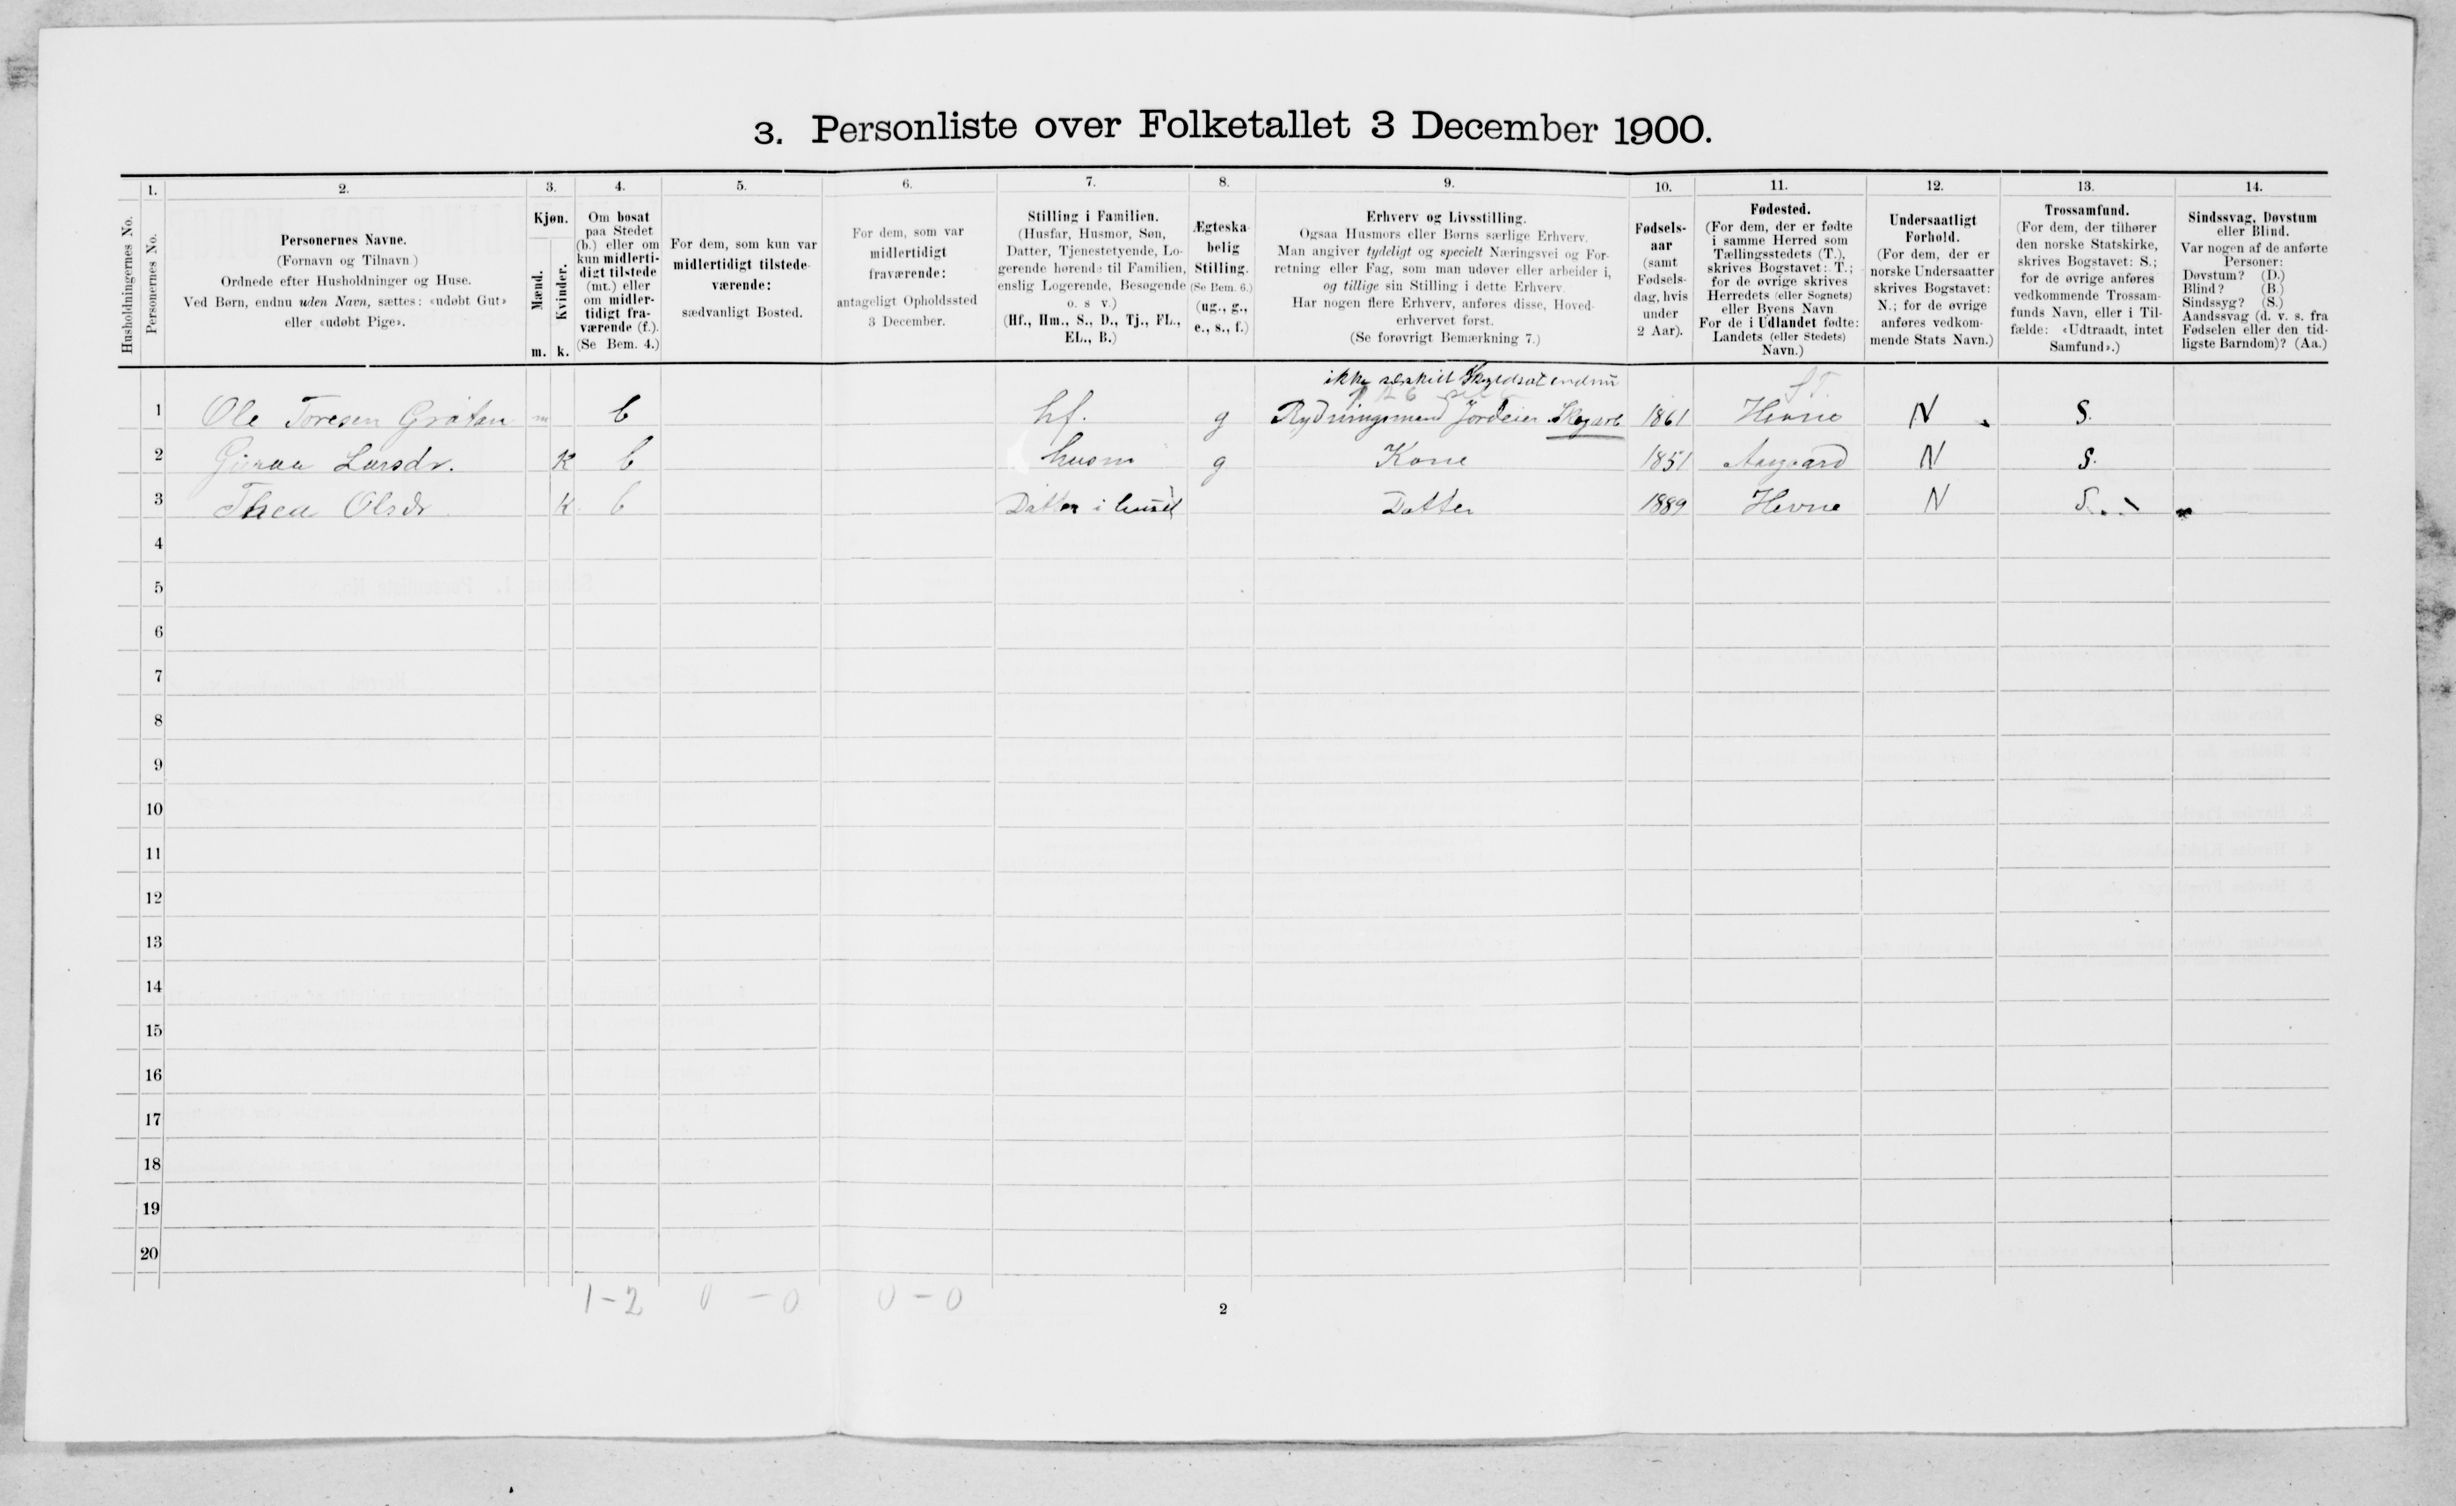 3. Personliste over Folketallet 3 December 1900.
1. 2. 3. 4. 5. 6. 7. 8. 9. 10. 11. 12. 13. 14.
Husholdningernes No.
Personernes No.
Personernes Navne.
(Fornavn og Tilnavn)
Ordnede efter Husholdninger og Huse.
Ved Børn, endnu uden Navn, sættes: «udøbt Gut»
eller «udøbt Pige».
Kjøn.
Mænd.
Kvinder.
m. k.
Om bosat
paa Stedet
(b.) eller om
kun midlerti-
digt tilstede
(mt.) eller
om midler-
tidigt fra-
værende (f.).
(Se Bem. 4.)
For dem, som kun var
midlertidigt tilstede-
værende:
sædvanligt Bosted.
For dem, som var
midlertidigt
fraværende:
antageligt Opholdssted
3 December.
Stilling i Familien.
(Husfar, Husmor, Søn,
Datter, Tjenestetyende, Lo-
gerende hørende til Familien,
enslig Logerende, Besøgende
o. s v.)
(Hf., Hm., S., D., Tj., FL.,
EL., B.)
Ægteska-
belig
Stilling.
(Se Bem. 6.)
(ug., g.,
e., s., f.)
Erhverv og Livsstilling.
Ogsaa Husmors eller Børns særlige Erhverv.
Man angiver tydeligt og specielt Næringsvei og For-
retning eller Fag, som man udøver eller arbeider i,
og tillige sin Stilling i dette Erhverv.
Har nogen flere Erhverv, anføres disse, Hoved-
erhvervet først.
(Se forøvrigt Bemærkning 7.)
Fødsels-
aar
(samt
Fødsels-
dag, hvis
under
2 Aar).
Fødested.
(For dem, der er fødte
i samme Herred som
Tællingsstedets (T.),
skrives Bogstavet: T.;
for de øvrige skrives
Herredets (eller Sognets)
eller Byens Navn
For de i Udlandet fødte:
Landets (eller Stedets)
Navn.)
Undersaatligt
Forhold.
(For dem, der er
norske Undersaatter
skrives Bogstavet:
N.; for de øvrige
anføres vedkom-
mende Stats Navn.)
Trossamfund.
(For dem, der tilhører
den norske Statskirke,
skrives Bogstavet: S.;
for de øvrige anføres
vedkommende Trossam-
funds Navn, eller i Til-
fælde: «Udtraadt, intet
Samfund».)
Sindssvag, Døvstum
eller Blind.
Var nogen af de anførte
Personer:
Døvstum? (D.)
Blind? (B.)
Sindssyg? (S.)
Aandssvag (d. v. s. fra
Fødselen eller den tid-
ligste Barndom)? (Aa.)
ikke særskilt Skyldsat endnu
T.
1 Ole Toresen Gråtan m b hf. g Rydningsmand Jordeier Skogarb 1861 Hevne N S.
2 Larsdr. K b husm g Kone 1851 N S.
3 Thea Olsdr K b Datter i huset Datter 1889 Hevne N S.
4
5
6
7
8
9
10
11
12
13
14
15
16
17
18
19
20
1 - 2 0 - 0 0 - 0
2